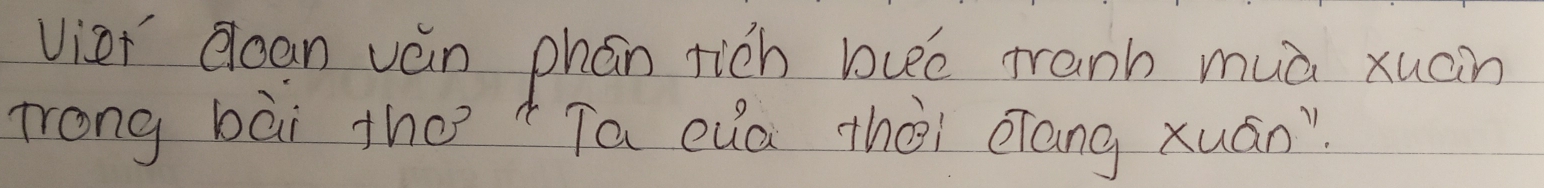 Viết đoạn văn phân tích bức tranh mùa xuân
trong bài thơ "Ta của thời đang xuân".